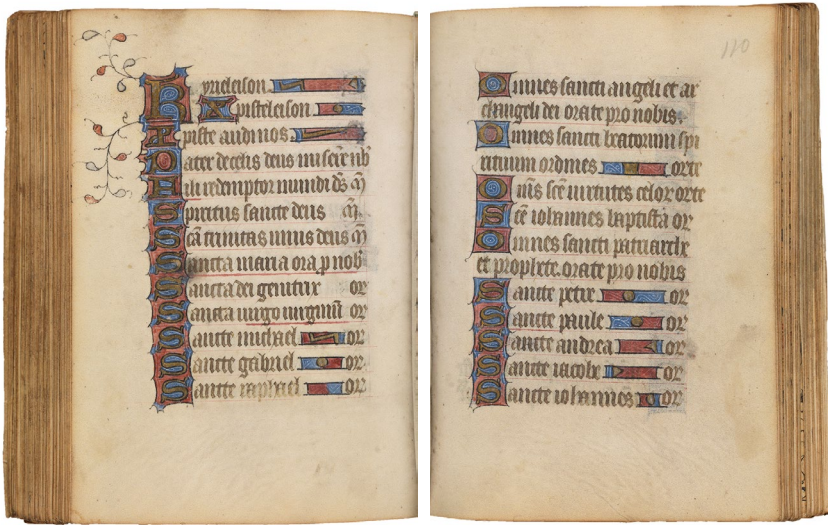 Kyrieleison
Xpisteleison
Xpiste audi nos
Pater de celis deus miserere nob
Fili redemptor mundi ds m
Spiritus sancte deus m
Sca trinitas unus deus m
Sancta maria ora p nob
Sancta dei genitrix or
Sancta virgo virginu or
Sancte michael or
Sancte gabriel or
Sancte raphael or
110
Omnes sancti angeli et ar
changeli dei orate pro nobis.
Omnes sancti beatorum spi
rituum ordines orte
Oms sce uirtutes celor orte
Sce iohannes baptista or
Omnes sancti patriarche
et prophete. orate pro nobis
Sancte petre or
Sancte paule or
Sancte andrea or
Sancte iacobe or
Sancte iohannes or